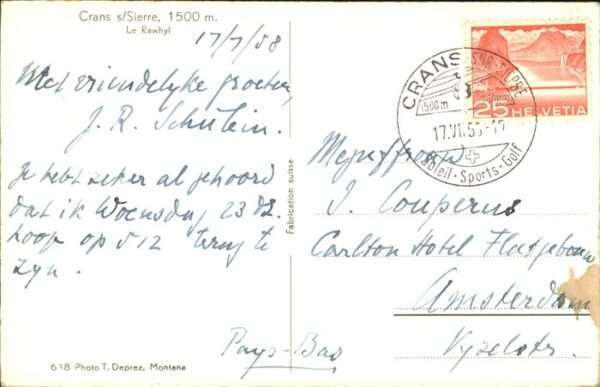 Crans s/Sierre, 1500 m.
Le Rawhyl
17/7/58
Met vriendelijke groeten,
J. R. Schulein.
Je hebt zeker al gehoord
dat ik Woensdag 23 dz.
hoop op 512 terug te
zyn.
Pays-Bas
618 Photo T. Deprez, Montana
Fabrication suisse
CRANS SUR SIERRE
1500 m
17.VII.58-12
Soleil-Sports-Golf
25 HELVETIA
Mejuffrouw
J. Couperus
Carlton Hotel Flatgebouw
Amsterdam
Vyzelstr.